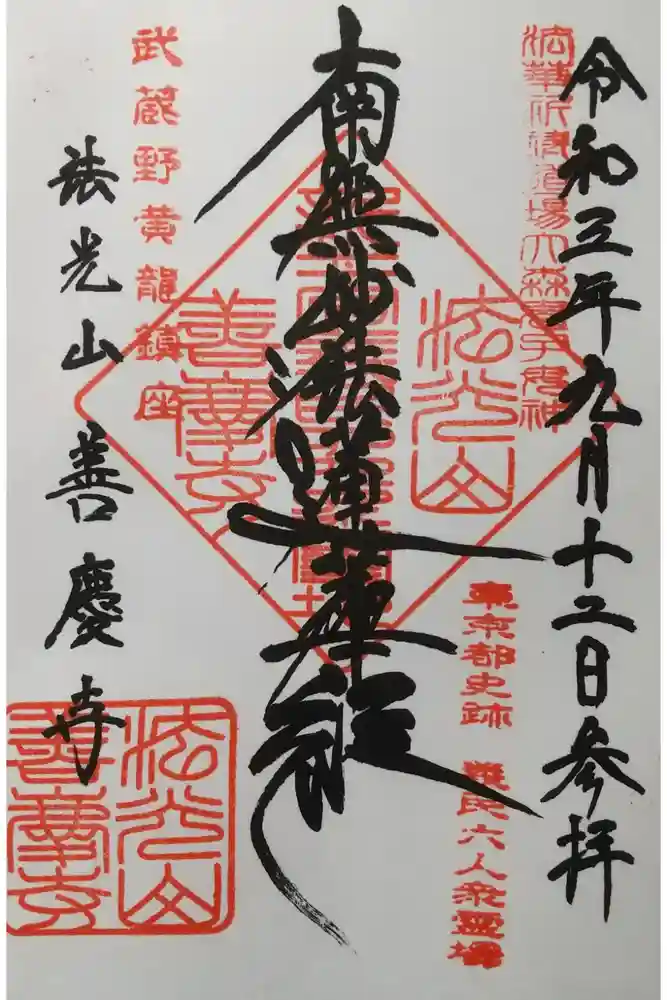 令和三年九月十二日参拝
法華祈祷道場大森鬼子母神
東京都史跡 義民六人衆霊場
南無妙法蓮華経
法光山
善慶寺
武蔵野黄龍鎮座
法光山 善慶寺
法光山
善慶寺